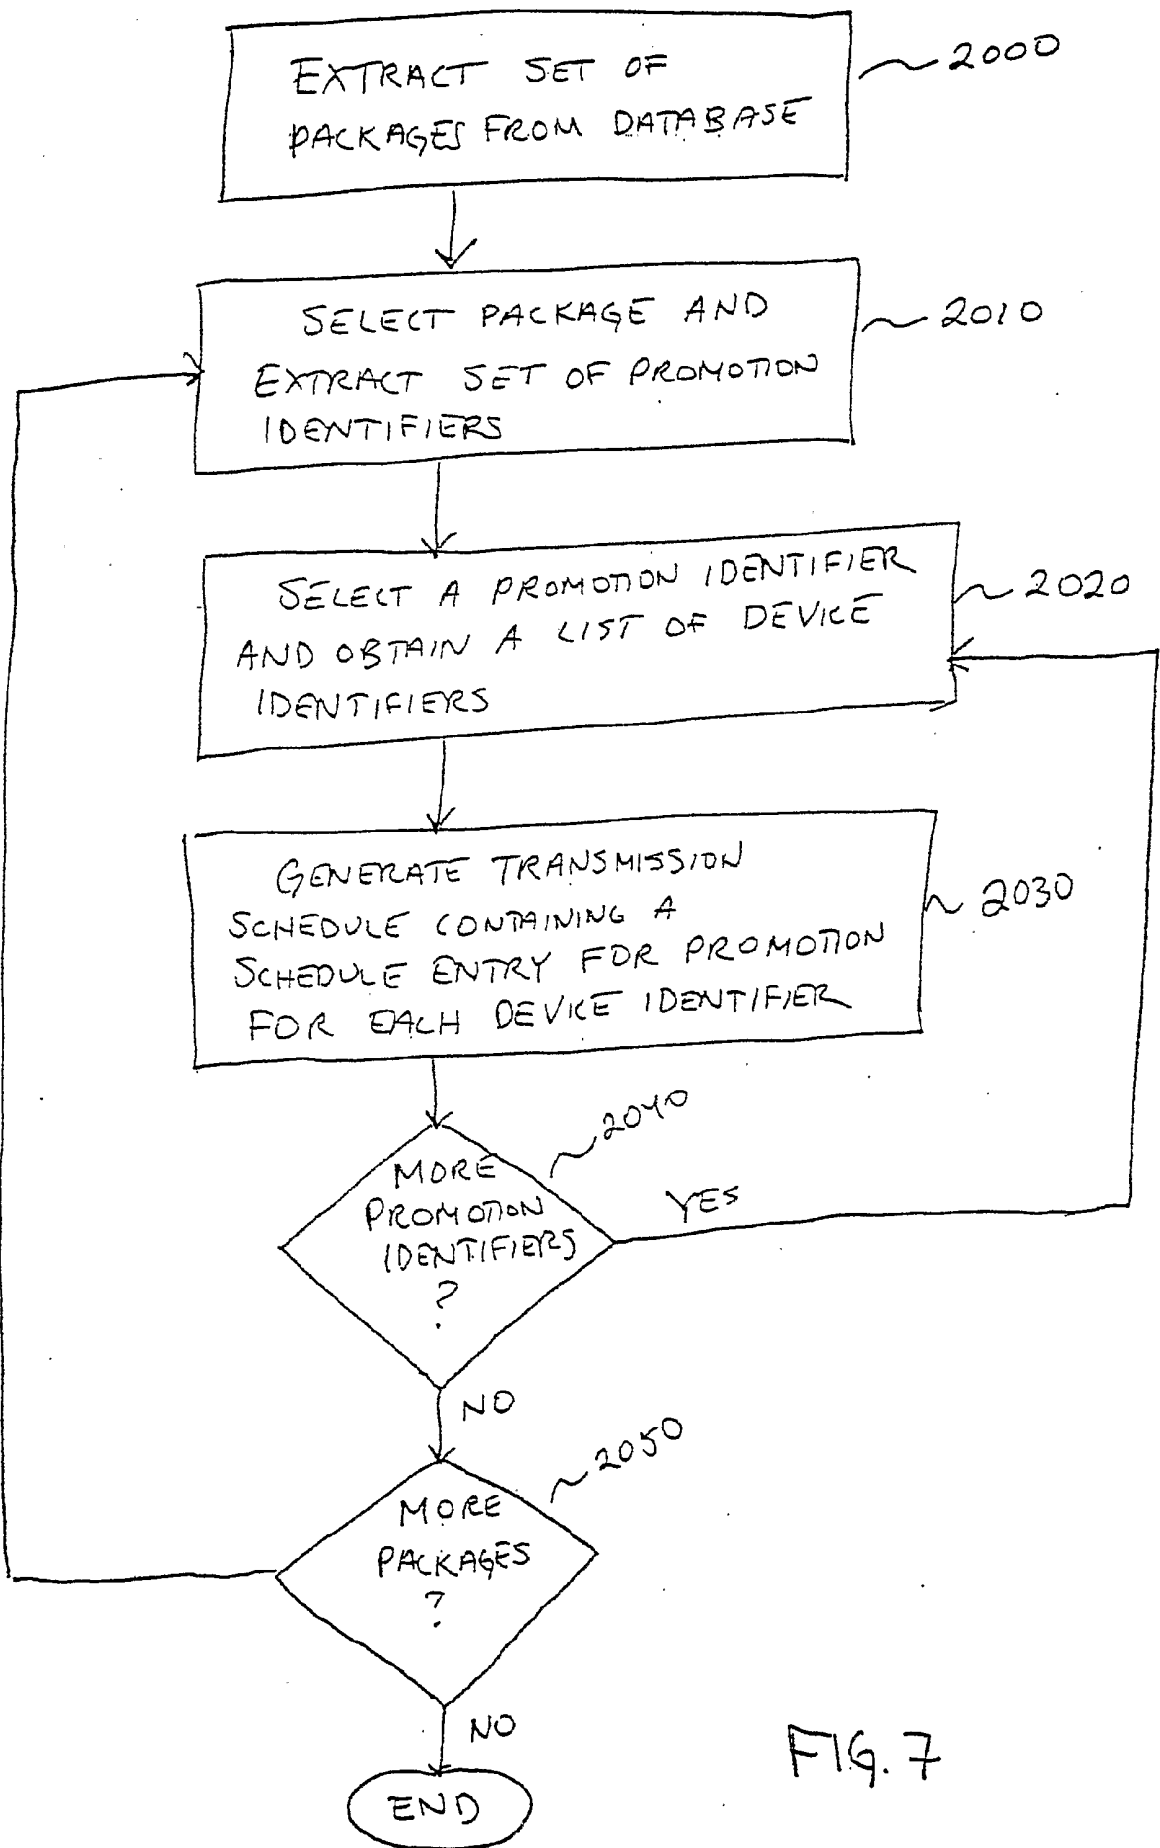 EXTRACT SET OF
PACKAGES FROM DATABASE
2000
SELECT PACKAGE AND
EXTRACT SET OF PROMOTION
IDENTIFIERS
2010
SELECT A PROMOTION IDENTIFIER
AND OBTAIN A LIST OF DEVICE
IDENTIFIERS
2020
GENERATE TRANSMISSION
SCHEDULE CONTAINING A
SCHEDULE ENTRY FOR PROMOTION
FOR EACH DEVICE IDENTIFIER
2030
MORE
PROMOTION
IDENTIFIERS
?
2040
YES
NO
MORE
PACKAGES
?
2050
NO
END
FIG. 7